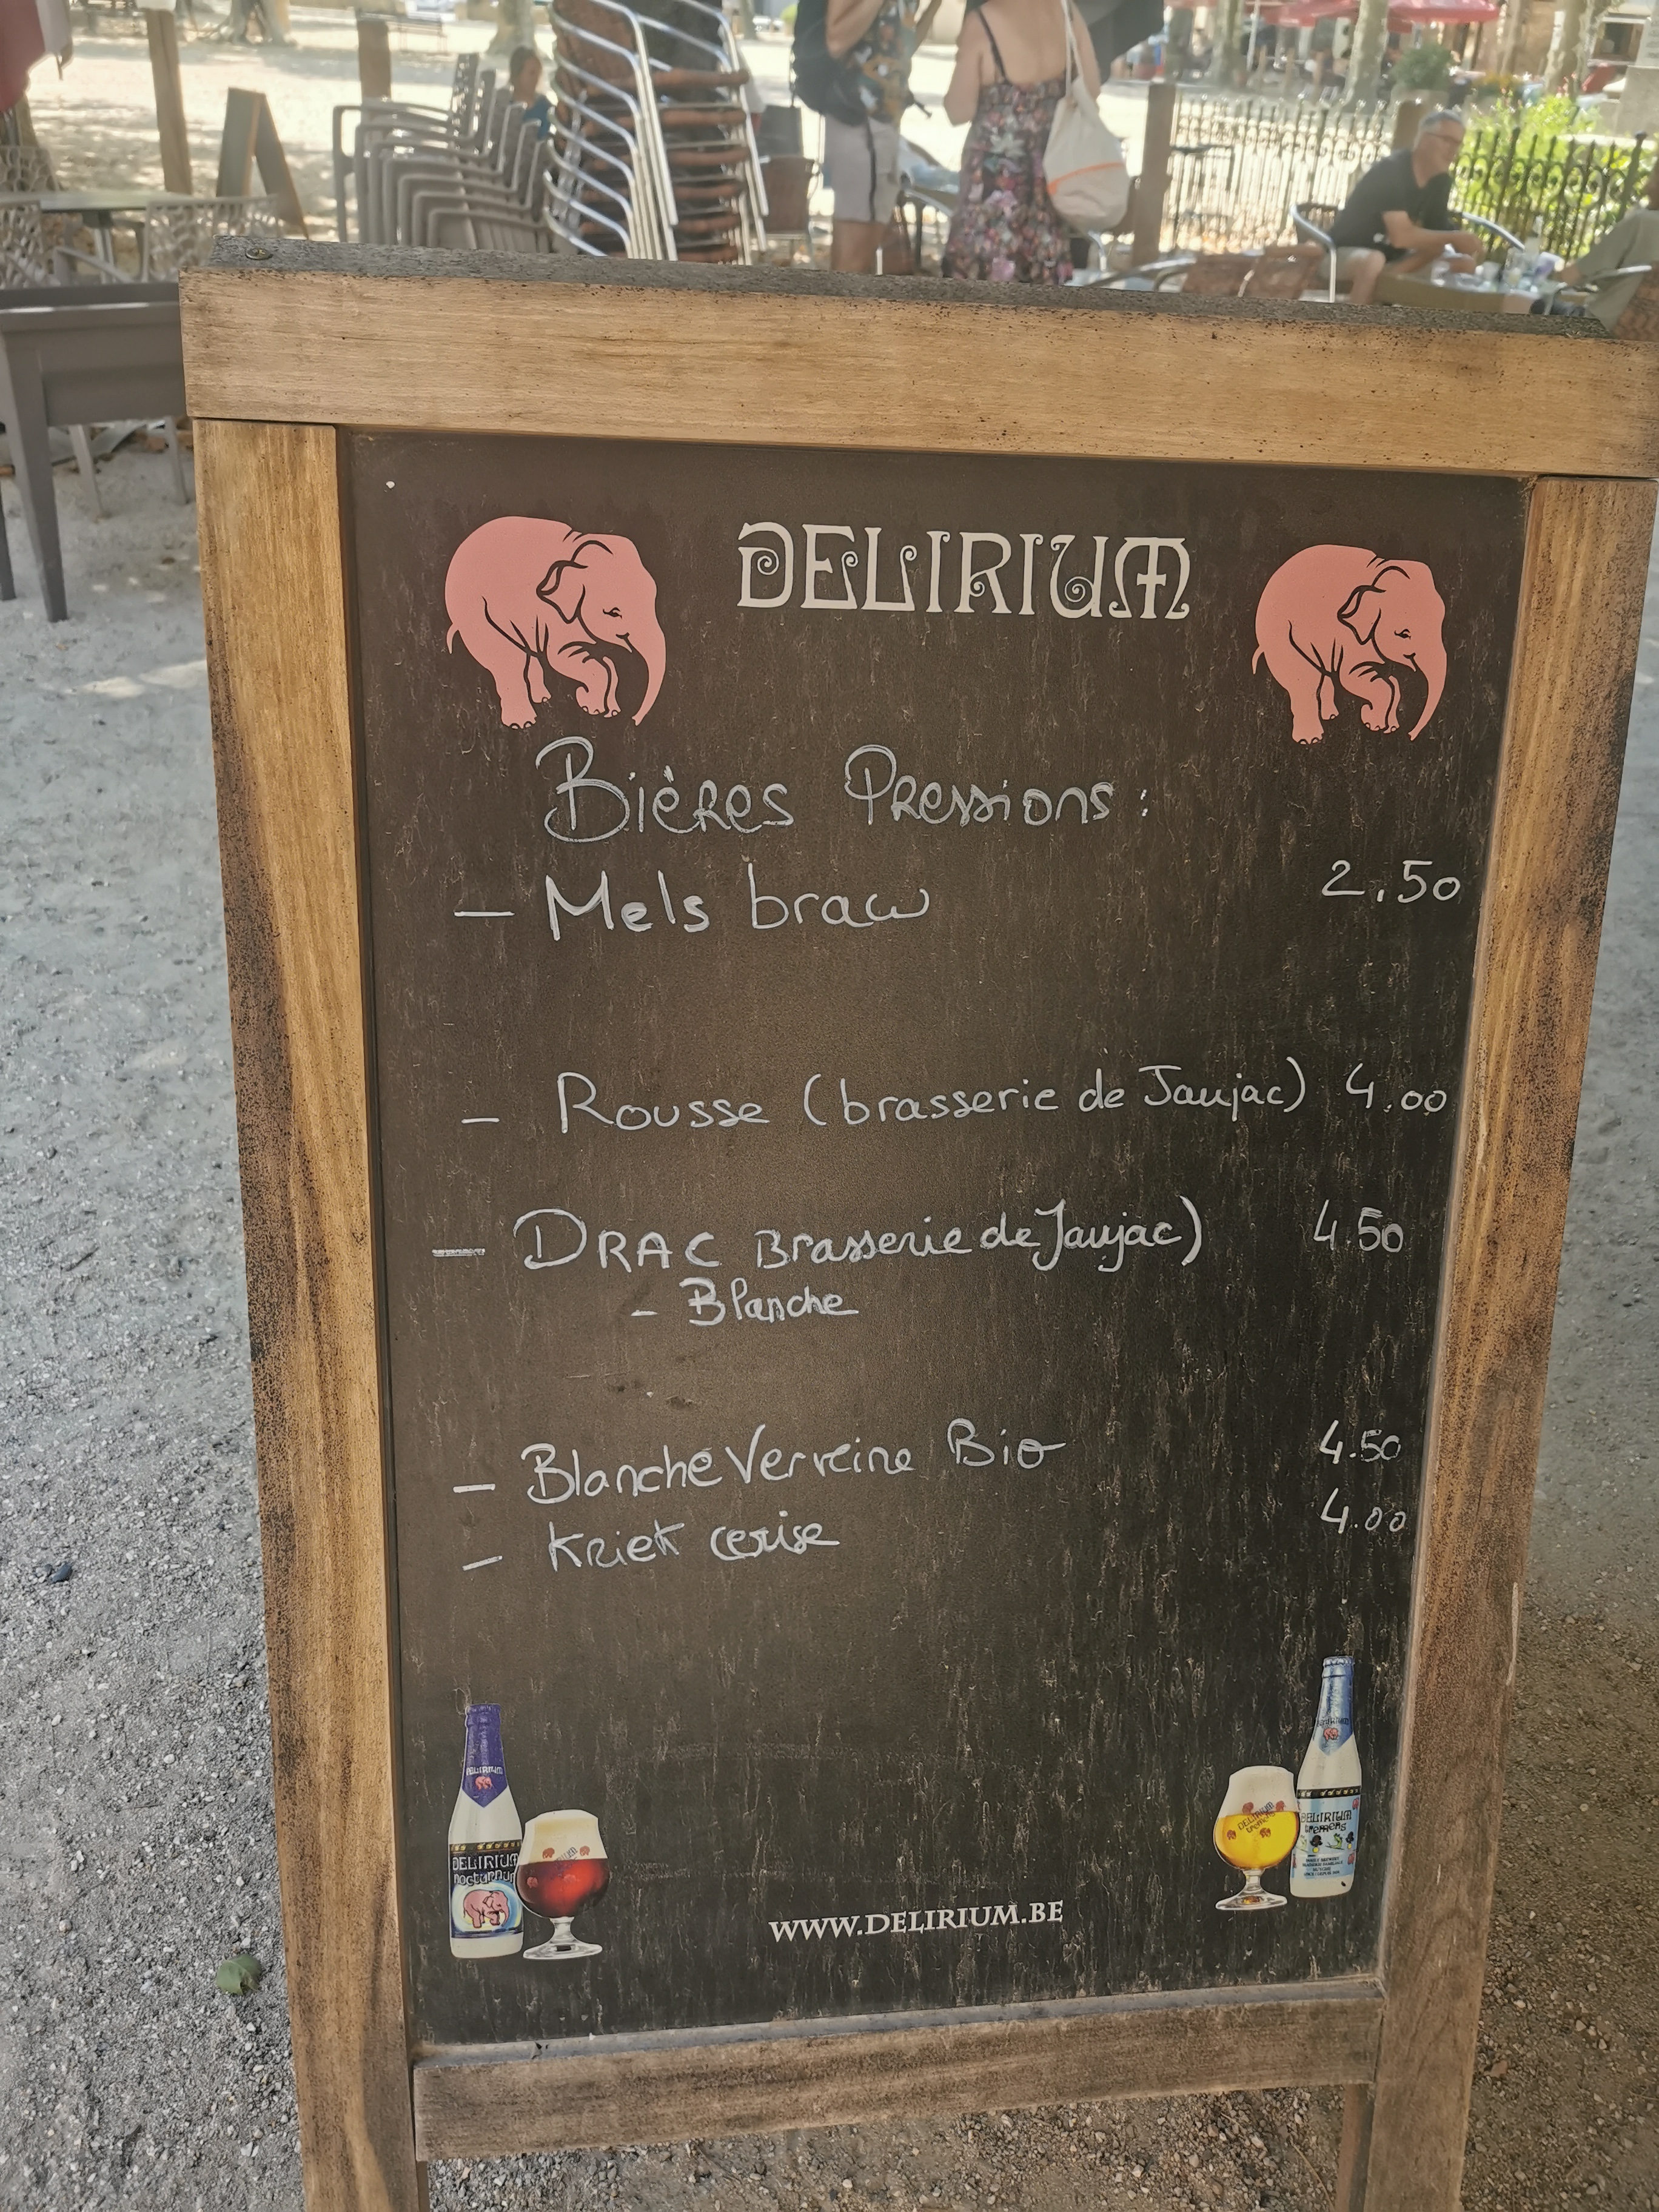 DELIRIUM
Bières Pressions :
- Mels braw 2.50
- Rousse (brasserie de Jaujac) 4.00
- DRAC Brasserie de Jaujac) 4.50
- Blanche
- Blanche Verveine Bio 4.50
- Kriek cerise 4.00
DELIRIUM
DELIRIUM
nocturnum
DELIRIUM
tremens
DELIRIUM
tremens
WWW.DELIRIUM.BE